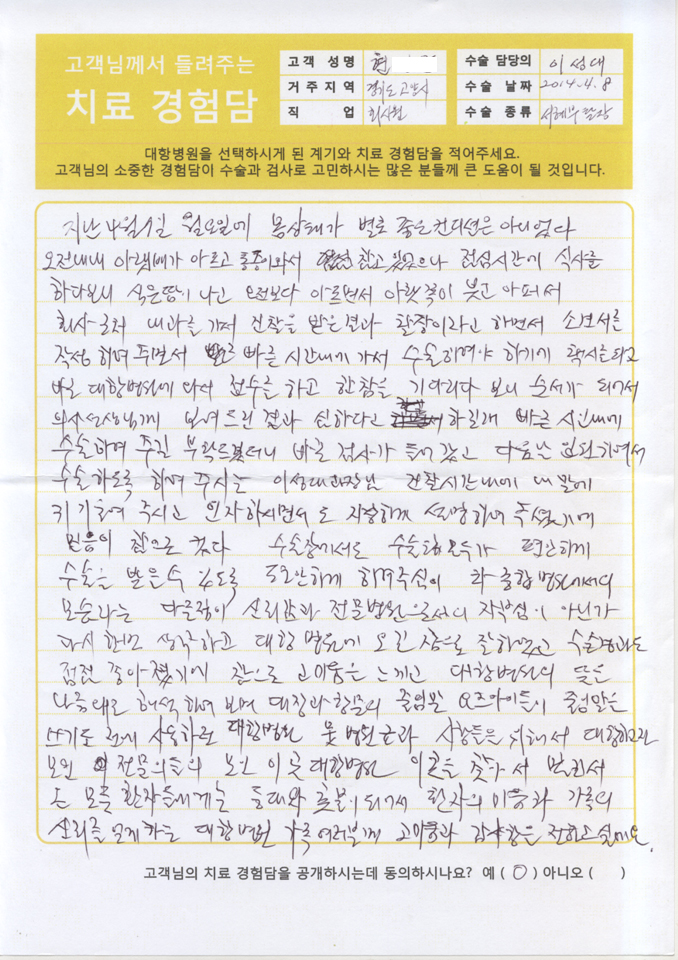 고객님께서 들려주는
치료 경험담
고객 성명 현
거주지역 경기도 고양시
직 업 회사원
수술 담당의 이성대
수술 날짜 2014.4.8
수술 종류
대항병원을 선택하시게 된 계기와 치료 경험담을 적어주세요.
고객님의 소중한 경험담이 수술과 검사로 고민하시는 많은 분들께 큰 도움이 될 것입니다.
지난 4월 월요일에 몸상태가 별로 좋은 컨디션은 아니었다
오전내내 아랫배가 아프고 통증이와서 참고 있었으나 점심시간에 식사를
하다보니 식은땀이 나고 오전보다 아프면서 아랫쪽이 붓고 아파서
회사 근처 내과를 가서 진찰을 받은결과 탈장이라고 하면서 소견서를
작성 하여 주면서 빠른 시간내에 가서 수술하여야 하기에 택시를타고
바로 대항병원에 와서 접수를 하고 한참을 기다리다 보니 순서가 되어서
의사선생님께 보여드린 결과 심하다고 하길래 빠른 시간내에
수술하여 주길 부탁드렸더니 바로 검사가 들어 갔고 다음날 입원하여서
수술하도록 하여 주시는 이성대과장님 진찰시간내에 내 말에
귀 기울여 주시고 인자하시면서도 자상하게 설명하여 주셨기에
믿음이 참으로 컸다 수술장에서도 수술팀모두가 편안하게
수술을 받을수 있도록 편안하게 하여주심이 타 종합병원에서의
모습과는 다른점이 신뢰감과 전문병원으로서의 자부심이 아닌가
다시 한번 생각하고 대항 병원에 오길 참으로 잘하였고 수술경과도
점점 좋아졌기에 참으로 고마움을 느끼고 대항병원의 뜻을
나름대로 해석하여 보며 대장과 항문의 줄임말 요즈아이들이 줄임말을
쓰기도 전에 사용하던 대항병원 못 병원균과 사람들을 위해서 대항하고자
모인 전문의들의 모인 이곳 대항병원 이곳을 찾아 서
는 모든 환자들에게는 등대와 촛불이 되어서 환자의 마음과 가족의
신뢰를 얻게하는 대항병원 가족여러분께 고마움과 감사함을 전하고 싶네요.
고객님의 치료 경험담을 공개하시는데 동의하시나요? 예 ( O ) 아니오 ( )